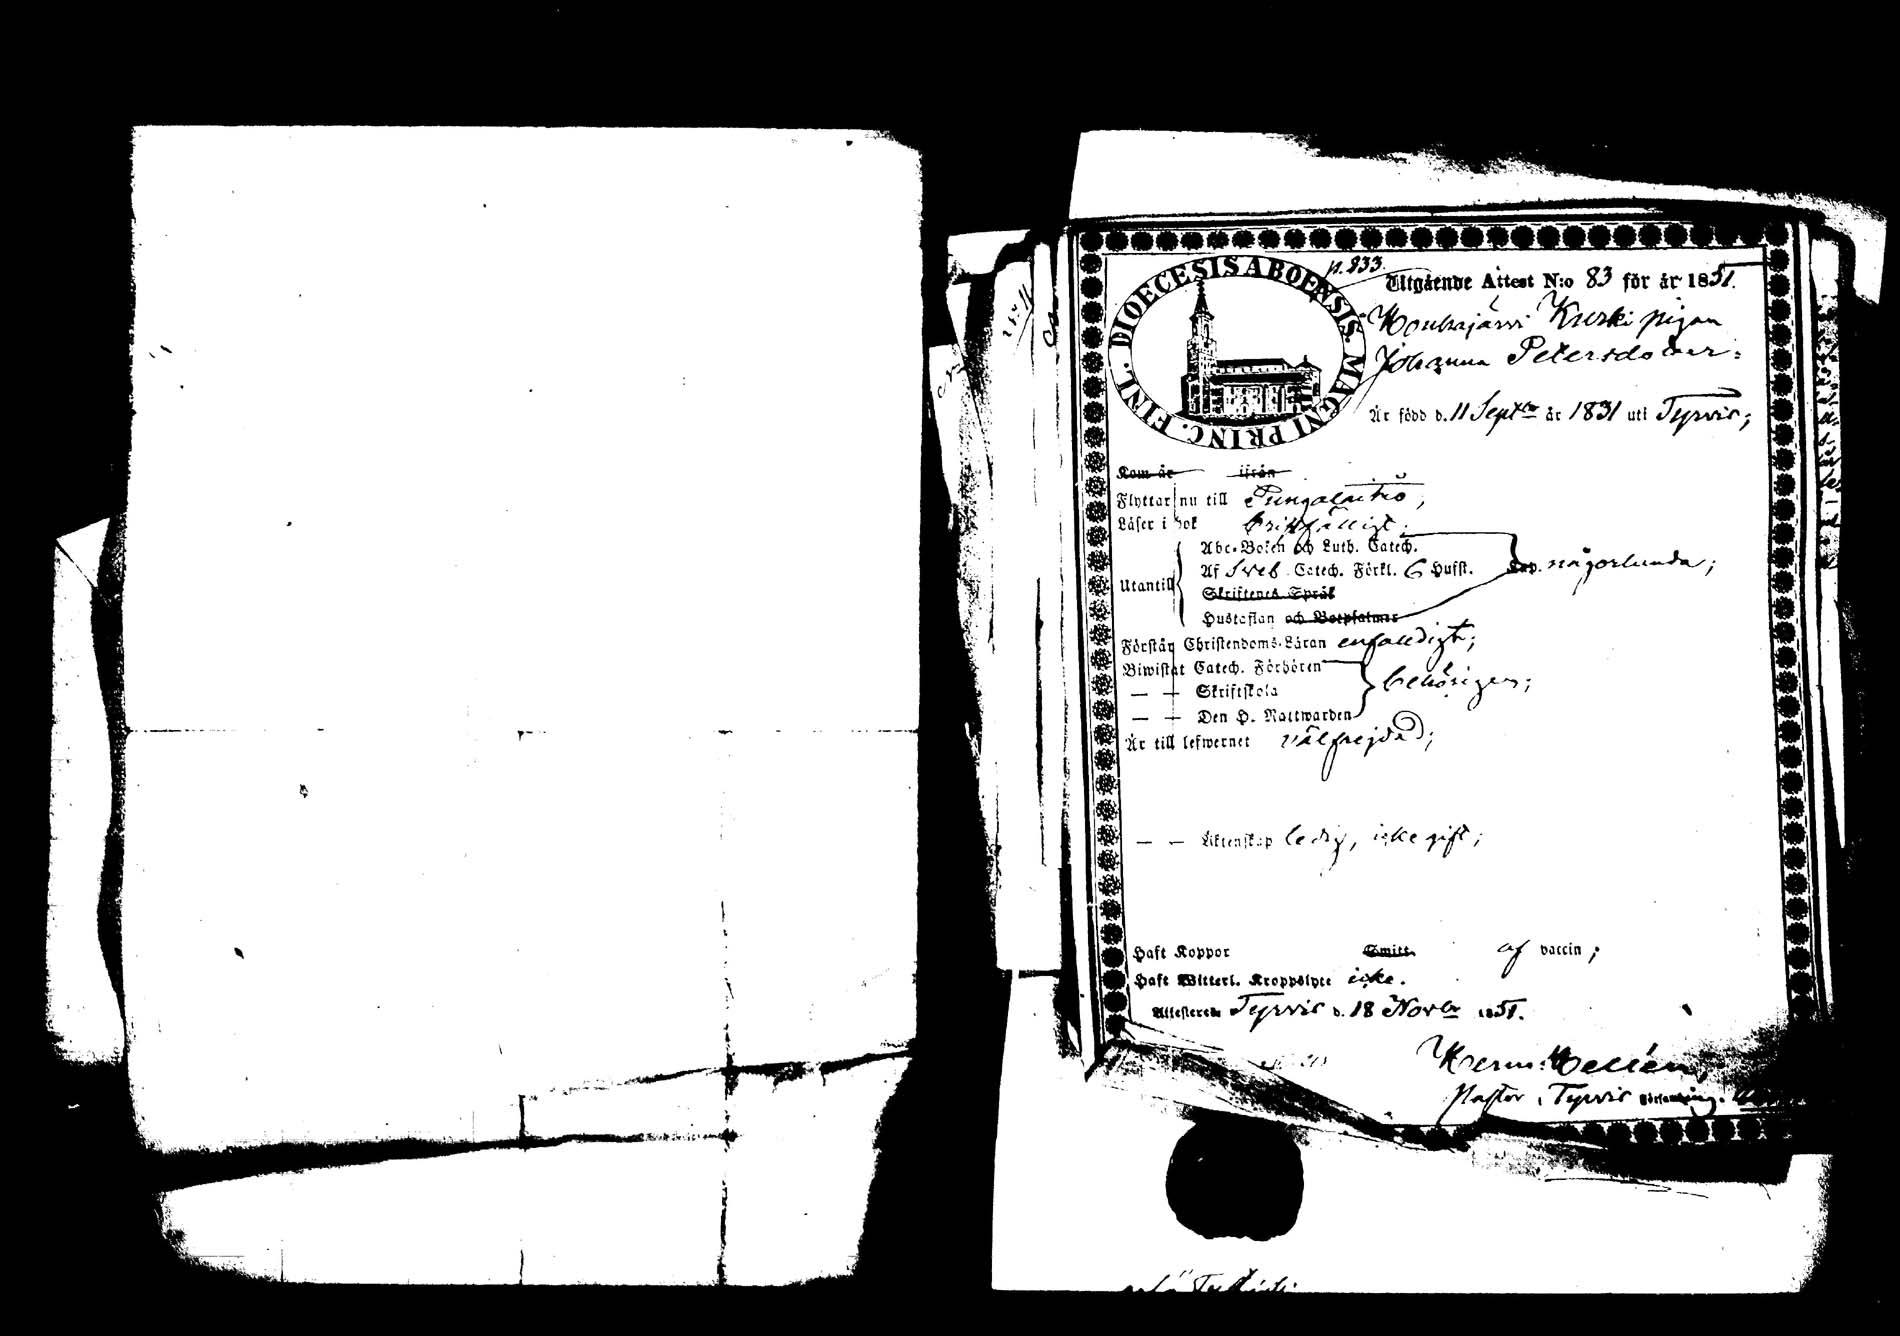 p. 833.
DIOECESIS ABOENSIS. MAGNI PRINC. FINL.
Utgående Attest N:o 83 för år 1851.
Houhajärvi Kurki pigan
Johanna Petersdotter:
Är född d. 11 Septbr år 1831 uti Tyrvis;
Kom år ifrån
Flyttar nu till Pungalaitio;
Läser i bok bristfälligt;
Abc-Boken och Luth. Catech.
Utantill Af Sveb. Catech. Förkl. 6 Hufst. någorlunda;
Skriftenes Språk
Hustaflan och Botpsalmer
Förstår Christendoms-Läran enfaldigt;
Biwistat Catech. Förhören
— — Skriftskola behörigen;
— — Den H. Nattwarden
Är till lefwernet välfrejdad;
— — Äktenskap ledig, icke gift;
Haft Koppor Smitt. af vaccin;
Haft Witterl. Kroppslyte icke.
Attesteres Tyrvis d. 18 Novbr 1851.
Herm: Hellén,
Pastor i Tyrvis Församling.